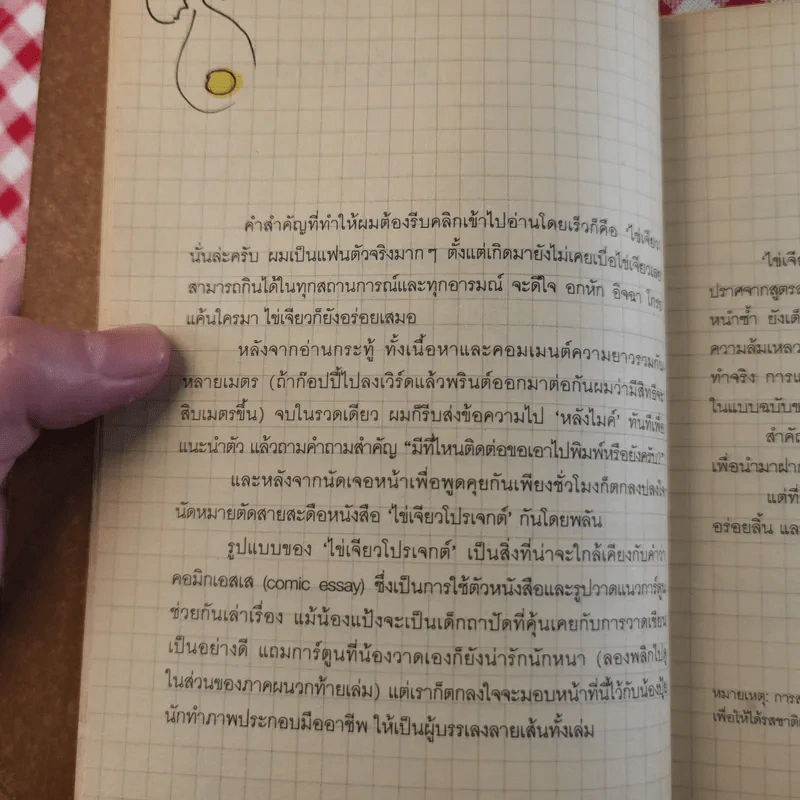 คำสำคัญที่ทำให้ผมต้องรีบคลิกเข้าไปอ่านโดยเร็วก็คือ 'ไข่เจียว'
นั่นล่ะครับ ผมเป็นแฟนตัวจริงมากๆ ตั้งแต่เกิดมายังไม่เคยเบื่อไข่เจียวเลย
สามารถกินได้ในทุกสถานการณ์และทุกอารมณ์ จะดีใจ อกหัก อิจฉา โกรธ
แค้นใครมา ไข่เจียวก็ยังอร่อยเสมอ
หลังจากอ่านกระทู้ ทั้งเนื้อหาและคอมเมนต์ความยาวรวมกัน
หลายเมตร (ถ้าก๊อปปี้ไปลงเวิร์ดแล้วพรินต์ออกมาต่อกันผมว่ามีสิทธิ์จะ
สิบเมตรขึ้น) จบในรวดเดียว ผมก็รีบส่งข้อความไป 'หลังไมค์' ทันทีเพื่อ
แนะนำตัว แล้วถามคำถามสำคัญ "มีที่ไหนติดต่อขอเอาไปพิมพ์หรือยังครับ?"
และหลังจากนัดเจอหน้าเพื่อพูดคุยกันเพียงชั่วโมงก็ตกลงปลงใจ
นัดหมายตัดสายสะดือหนังสือ 'ไข่เจียวโปรเจกต์' กันโดยพลัน
รูปแบบของ 'ไข่เจียวโปรเจกต์' เป็นสิ่งที่น่าจะใกล้เคียงกับคำว่า
คอมิกเอสเส (comic essay) ซึ่งเป็นการใช้ตัวหนังสือและรูปวาดแนวการ์ตูน
ช่วยกันเล่าเรื่อง แม้น้องแป้งจะเป็นเด็กถาปัดที่คุ้นเคยกับการวาดเขียน
เป็นอย่างดี แถมการ์ตูนที่น้องวาดเองก็ยังน่ารักนักหนา (ลองพลิกไปดู
ในส่วนของภาคผนวกท้ายเล่ม) แต่เราก็ตกลงใจจะมอบหน้าที่นี้ไว้กับน้อง
นักทำภาพประกอบมืออาชีพ ให้เป็นผู้บรรเลงลายเส้นทั้งเล่ม
'ไข่เจี
ปราศจากสูตร
หนำซ้ำ ยังเ
ความล้มเหล
ทำจริง การ
ในแบบฉบับ
สำคั
เพื่อนำมาฝา
แต่ที่
อร่อยลิ้น แล
หมายเหตุ: การ
เพื่อให้ได้รสชาติ